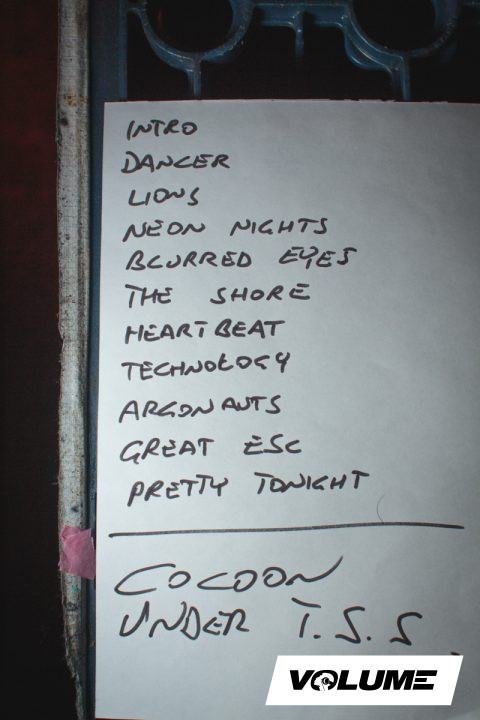 INTRO
DANCER
LIONS
NEON NIGHTS
BLURRED EYES
THE SHORE
HEARTBEAT
TECHNOLOGY
ARGONAUTS
GREAT ESC
PRETTY TONIGHT
COCOON
UNDER T.S.S.
VOLUME